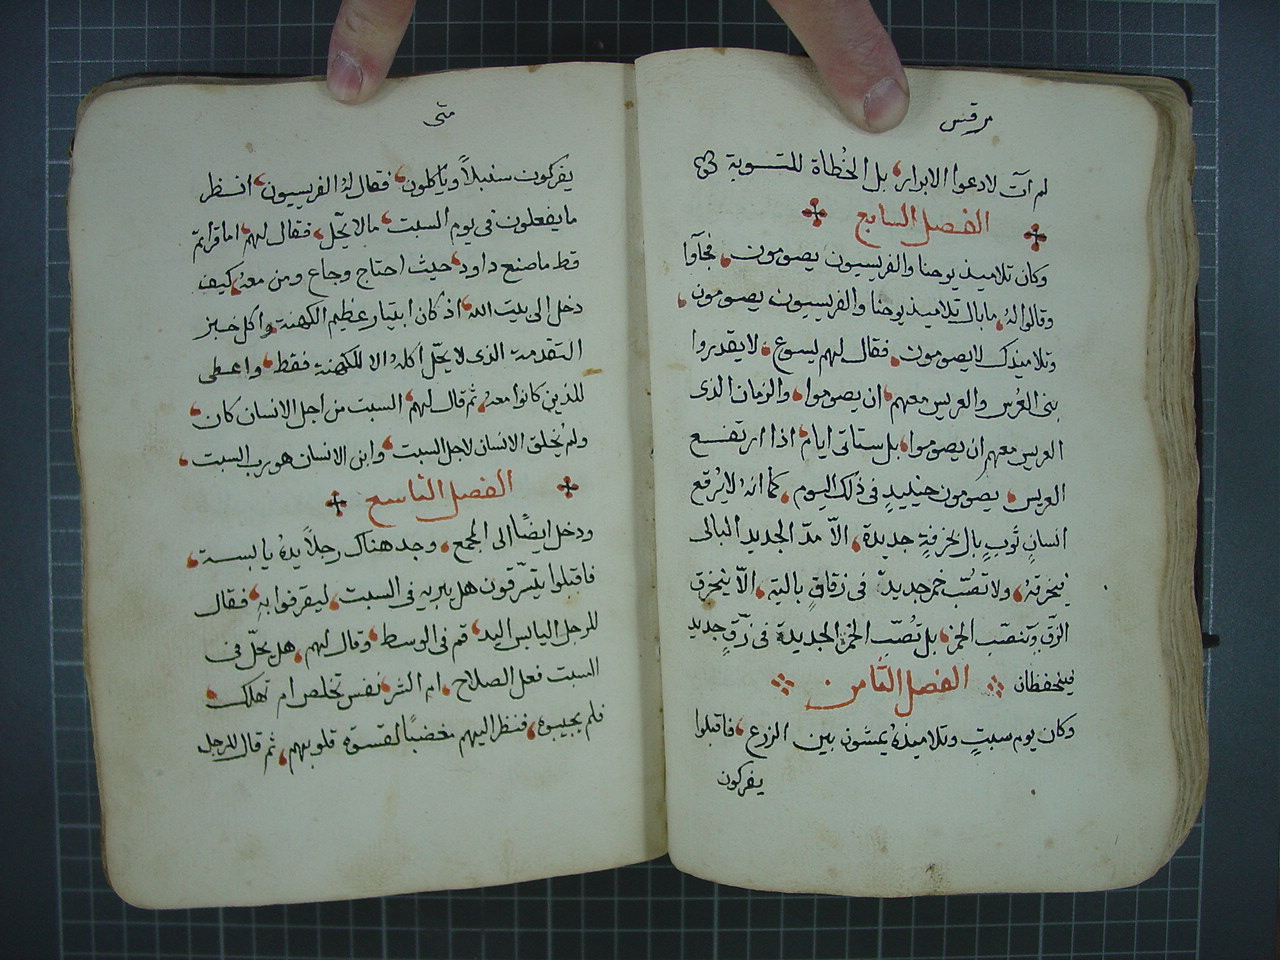 مرقس
لم آت لادعوا الابرار، بل الخُطاة للتوبة
الفصل السابع
وكان تلاميذ يوحنا والفريسيون يصومون، فجآوا
وقالوا لهُ، ما بال تلاميذ يوحنا والفريسيون يصومون،
وتلاميذك لا يصومون، فقال لهم يسوع، لا يقدروا
بنى العُرس والعريس معهم، ان يصوموا، والزمان الذى
العريس معهم ان يصوموا، بل ستاتى ايام، اذا ارتفع
العريس، يصومون حينيدٍ فى ذلك اليوم، كما انهُ لا يُرقع
انسانٍ ثَوبٍ بالٍ بخرقةٍ جديدة، الاّ مدّ الجديد البالى
فيخرقهُ، ولا تصُبّ خمر جديدة فى زقاقٍ بالية، الاّ ينخرق
الزقّ وتنصّب الخمر، بل تُصبّ الخمرة الجديدة فى زّقٍ جديد
فينحفظان الفصل الثامن
وكان يوم سبتٍ وتلاميذهُ يمشون بين الزرع، فاقبلوا
يفركون
متى
يفركون سنبلاً وياكلون، فقال لهُ الفريسيون، انظر
ما يفعلون فى يوم السبت، ما لا يحّل، فقال لهم، اما قراتم
قط ما صنع داود، حيث احتاج وجاع ومن معهُ، كيف
دخل الى بيت الله، اذ كان ابيتار عظيم الكهنة، واكل خبز
التقدمة الذى لا يحّل اكلهُ الا للكهنة فقط، واعطى
للذين كانوا معهُ، ثم قال لهم، السبت من اجل الانسان كان،
ولم يُخلق الانسان لاجل السبت، وابن الانسان هو رب السبت،
الفصل التاسع
ودخل ايضًا الى المجمع، وجد هناك رجلاً يدهُ يابسة،
فاقبلوا يتسّرقون هل يبريه فى السبت، ليقرفوا بهِ، فقال
للرجل اليابس اليد، قم فى الوسط، وقال لهم، هل يحّل فى
السبت فعل الصلاح، ام الشر، نفس تخلص ام تهلك،
فلم يجيبوه، فنظر اليهم مغضبًا لقسوّه قلوبهم، ثم قال للرجل